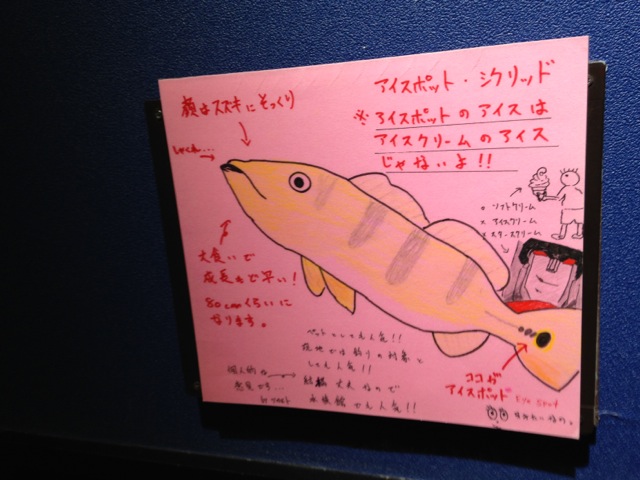 アイスポット・シクリッド
※ アイスポットのアイスは
アイスクリームのアイス
じゃないよ!!
顔はスズキにそっくり
しゃくれ…
○ ソフトクリーム
× アイスクリーム
× スタースクリーム
大食いで
成長も早い!
80cmくらいに
なります。
ペットとしても人気!!
現地では釣りの対象と
しても人気!!
個人的な
意見だけど…
結構丈夫なので
水族館でも人気!!
ココが
アイスポット
Eye Spot